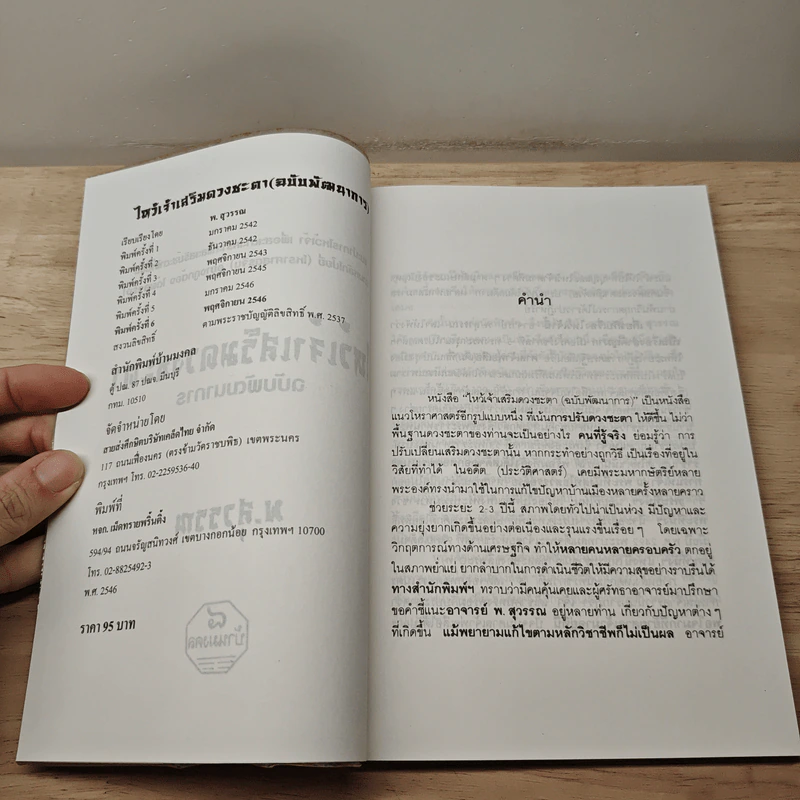 ไหว้เจ้าเสริมดวงชะตา(ฉบับพัฒนาการ)
เรียบเรียงโดย พ. สุวรรณ
พิมพ์ครั้งที่ 1 มกราคม 2542
พิมพ์ครั้งที่ 2 ธันวาคม 2542
พิมพ์ครั้งที่ 3 พฤศจิกายน 2543
พิมพ์ครั้งที่ 4 พฤศจิกายน 2545
พิมพ์ครั้งที่ 5 มกราคม 2546
พิมพ์ครั้งที่ 6 พฤศจิกายน 2546
สงวนลิขสิทธิ์ ตามพระราชบัญญัติลิขสิทธิ์ พ.ศ. 2537
สำนักพิมพ์บ้านมงคล
ตู้ ปณ. 87 ปณจ. มีนบุรี
กทม. 10510
จัดจำหน่ายโดย
สายส่งศึกษิตบริษัทเคล็ดไทย จำกัด
117 ถนนเฟื่องนคร (ตรงข้ามวัดราชบพิธ) เขตพระนคร
กรุงเทพฯ โทร. 02-2259536-40
พิมพ์ที่
หจก. เม็ดทรายพริ้นติ้ง
594/94 ถนนจรัญสนิทวงศ์ เขตบางกอกน้อย กรุงเทพฯ 10700
โทร. 02-8825492-3
พ.ศ. 2546
ราคา 95 บาท
คำนำ
หนังสือ "ไหว้เจ้าเสริมดวงชะตา (ฉบับพัฒนาการ)" เป็นหนังสือ
แนวโหราศาสตร์อีกรูปแบบหนึ่ง ที่เน้นการปรับดวงชะตา ให้ดีขึ้น ไม่ว่า
พื้นฐานดวงชะตาของท่านจะเป็นอย่างไร คนที่รู้จริง ย่อมรู้ว่า การ
ปรับเปลี่ยนเสริมดวงชะตานั้น หากกระทำอย่างถูกวิธี เป็นเรื่องที่อยู่ใน
วิสัยที่ทำได้ ในอดีต (ประวัติศาสตร์) เคยมีพระมหากษัตริย์หลาย
พระองค์ทรงนำมาใช้ในการแก้ไขปัญหาบ้านเมืองหลายครั้งหลายคราว
ช่วงระยะ 2-3 ปีนี้ สภาพโดยทั่วไปน่าเป็นห่วง มีปัญหาและ
ความยุ่งยากเกิดขึ้นอย่างต่อเนื่องและรุนแรงขึ้นเรื่อยๆ โดยเฉพาะ
วิกฤตการณ์ทางด้านเศรษฐกิจ ทำให้หลายคนหลายครอบครัว ตกอยู่
ในสภาพย่ำแย่ ยากลำบากในการดำเนินชีวิตให้มีความสุขอย่างราบรื่นได้
ทางสำนักพิมพ์ฯ ทราบว่ามีคนคุ้นเคยและผู้ศรัทธาอาจารย์มาปรึกษา
ขอคำชี้แนะอาจารย์ พ. สุวรรณ อยู่หลายท่าน เกี่ยวกับปัญหาต่าง ๆ
ที่เกิดขึ้น แม้พยายามแก้ไขตามหลักวิชาชีพก็ไม่เป็นผล อาจารย์